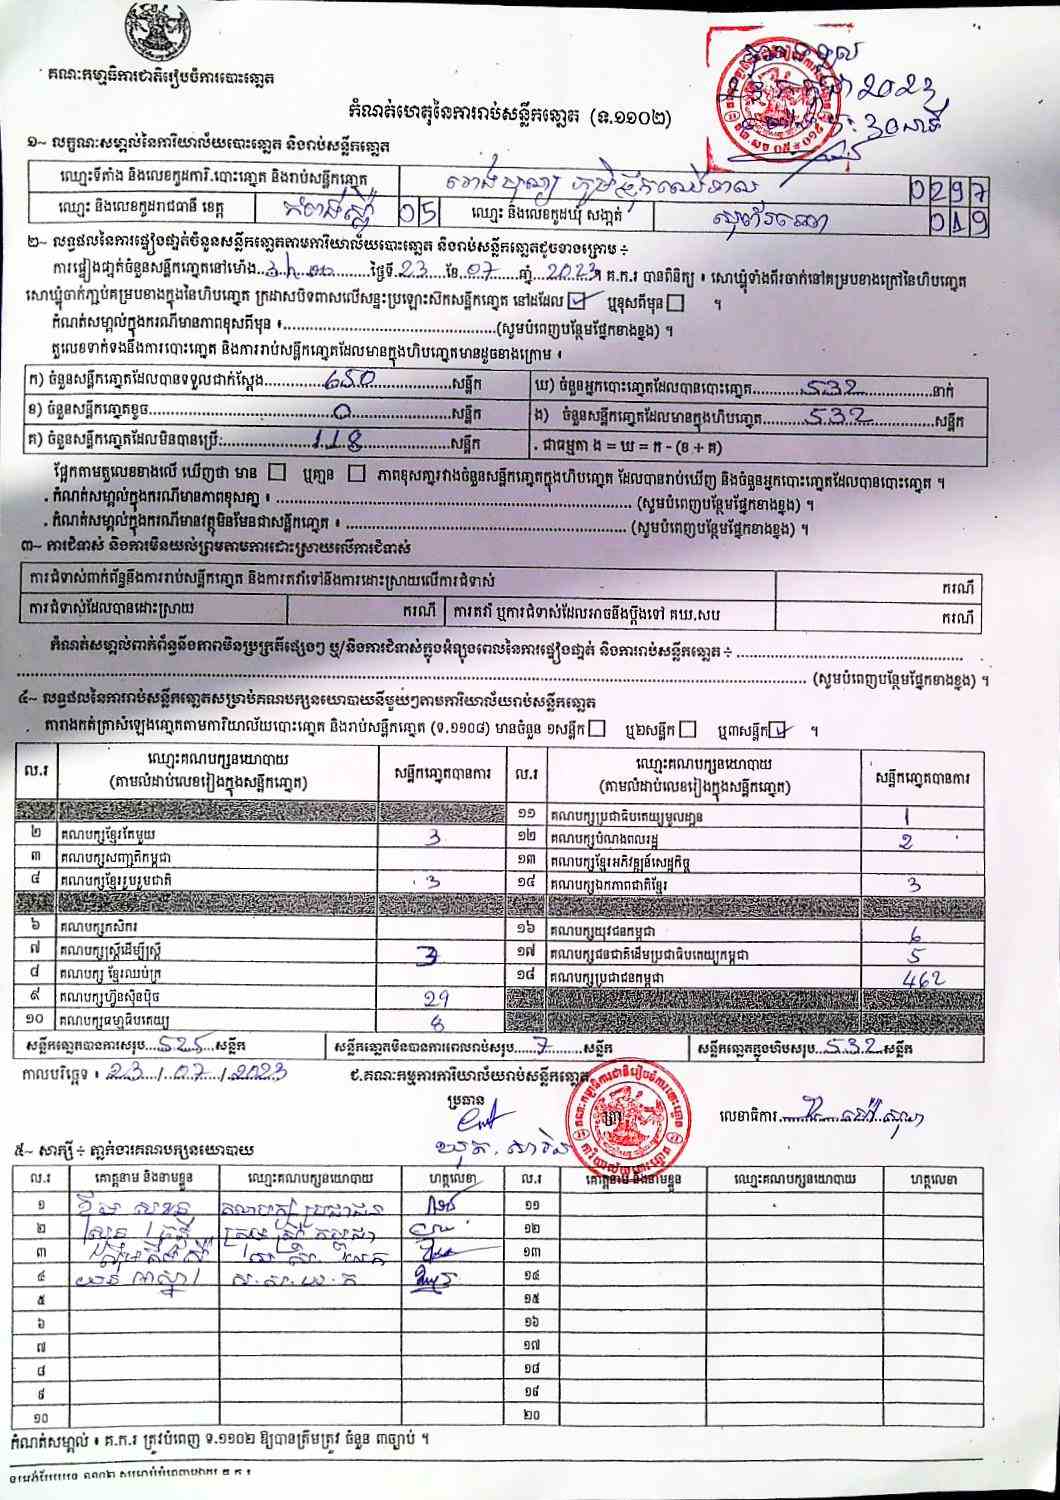 គណៈកម្មាធិការជាតិរៀបចំការបោះឆ្នោត
កំណត់ហេតុនៃការរាប់សន្លឹកឆ្នោត (ទ.១១០២)
2023
១~ លក្ខណៈសម្គាល់នៃការិយាល័យបោះឆ្នោត និងរាប់សន្លឹកឆ្នោត
ឈ្មោះទីតាំង និងលេខកូដការិ.បោះឆ្នោត និងរាប់សន្លឹកឆ្នោត 0297
ឈ្មោះ និងលេខកូដរាជធានី ខេត្ត កំពង់ស្ពឺ 05 ឈ្មោះ និងលេខកូដឃុំ សង្កាត់ 019
២~ លទ្ធផលនៃការផ្ទៀងផ្ទាត់ចំនួនសន្លឹកឆ្នោតតាមការិយាល័យបោះឆ្នោត និងរាប់សន្លឹកឆ្នោតដូចខាងក្រោម ÷
ការផ្ទៀងផ្ទាត់ចំនួនសន្លឹកឆ្នោតនៅម៉ោង ថ្ងៃទី.23 ខែ.07 ឆ្នាំ.2023។ គ.ក.រ បានពិនិត្យ ៖ សោឃ្លុំទាំងពីរចាក់នៅគម្របខាងក្រៅនៃហិបឆ្នោត
សោឃ្លុំចាក់ភ្ជាប់គម្របខាងក្នុងនៃហិបឆ្នោត ក្រដាសបិទពាសលើសន្ទះប្រឡោះសឹកសន្លឹកឆ្នោត នៅដដែល ☑ ឬខុសពីមុន ☐ ។
កំណត់សម្គាល់ក្នុងករណីមានភាពខុសពីមុន ៖ (សូមបំពេញបន្ថែមផ្នែកខាងខ្នង) ។
តួលេខទាក់ទងនឹងការបោះឆ្នោត និងការរាប់សន្លឹកឆ្នោតដែលមានក្នុងហិបឆ្នោតមានដូចខាងក្រោម ៖
ក) ចំនួនសន្លឹកឆ្នោតដែលបានទទួលជាក់ស្តែង 650 សន្លឹក ឃ) ចំនួនអ្នកបោះឆ្នោតដែលបានបោះឆ្នោត 532 នាក់
ខ) ចំនួនសន្លឹកឆ្នោតខូច 0 សន្លឹក ង) ចំនួនសន្លឹកឆ្នោតដែលមានក្នុងហិបឆ្នោត 532 សន្លឹក
គ) ចំនួនសន្លឹកឆ្នោតដែលមិនបានប្រើ 118 សន្លឹក . ជាធម្មតា ង = ឃ = ក - (ខ + គ)
ផ្អែកតាមតួលេខខាងលើ ឃើញថា មាន ☐ ឬគ្មាន ☐ ភាពខុសគ្នារវាងចំនួនសន្លឹកឆ្នោតក្នុងហិបឆ្នោត ដែលបានរាប់ឃើញ និងចំនួនអ្នកបោះឆ្នោតដែលបានបោះឆ្នោត ។
. កំណត់សម្គាល់ក្នុងករណីមានភាពខុសគ្នា ៖ (សូមបំពេញបន្ថែមផ្នែកខាងខ្នង) ។
. កំណត់សម្គាល់ក្នុងករណីមានវត្ថុមិនមែនជាសន្លឹកឆ្នោត ៖ (សូមបំពេញបន្ថែមផ្នែកខាងខ្នង) ។
៣~ ការជំទាស់ និងការមិនយល់ព្រមតាមការដោះស្រាយលើការជំទាស់
ការជំទាស់ពាក់ព័ន្ធនឹងការរាប់សន្លឹកឆ្នោត និងការតវ៉ាទៅនឹងការដោះស្រាយលើការជំទាស់ ករណី
ការជំទាស់ដែលបានដោះស្រាយ ករណី ការតវ៉ា ឬការជំទាស់ដែលអាចនឹងប្តឹងទៅ គឃ.សប ករណី
កំណត់សម្គាល់ពាក់ព័ន្ធនឹងភាពមិនប្រក្រតីផ្សេងៗ ឬ/និងការជំទាស់ក្នុងអំឡុងពេលនៃការផ្ទៀងផ្ទាត់ និងការរាប់សន្លឹកឆ្នោត ÷
(សូមបំពេញបន្ថែមផ្នែកខាងខ្នង) ។
៤~ លទ្ធផលនៃការរាប់សន្លឹកឆ្នោតសម្រាប់គណបក្សនយោបាយនីមួយៗតាមការិយាល័យរាប់សន្លឹកឆ្នោត
តារាងកត់ត្រាសំឡេងឆ្នោតតាមការិយាល័យបោះឆ្នោត និងរាប់សន្លឹកឆ្នោត (ទ.១១០៨) មានចំនួន ១សន្លឹក ☐ ឬ២សន្លឹក ☐ ឬ៣សន្លឹក ☑ ។
ល.រ ឈ្មោះគណបក្សនយោបាយ (តាមលំដាប់លេខរៀងក្នុងសន្លឹកឆ្នោត) សន្លឹកឆ្នោតបានការ ល.រ ឈ្មោះគណបក្សនយោបាយ (តាមលំដាប់លេខរៀងក្នុងសន្លឹកឆ្នោត) សន្លឹកឆ្នោតបានការ
១១ គណបក្សប្រជាធិបតេយ្យមូលដ្ឋាន 1
២ គណបក្សខ្មែរតែមួយ 3 ១២ គណបក្សបំណងពលរដ្ឋ 2
៣ គណបក្សសញ្ជាតិកម្ពុជា ១៣ គណបក្សខ្មែរអភិវឌ្ឍន៍សេដ្ឋកិច្ច
៤ គណបក្សខ្មែររួបរួមជាតិ 3 ១៤ គណបក្សឯកភាពជាតិខ្មែរ 3
៦ គណបក្សកសិករ ១៦ គណបក្សយុវជនកម្ពុជា 6
៧ គណបក្សស្ត្រីដើម្បីស្ត្រី 3 ១៧ គណបក្សជនជាតិដើមប្រជាធិបតេយ្យកម្ពុជា 5
៨ គណបក្ស ខ្មែរឈប់ក្រ ១៨ គណបក្សប្រជាជនកម្ពុជា 462
៩ គណបក្សហ្វ៊ុនស៊ិនប៉ិច 29
១០ គណបក្សធម្មាធិបតេយ្យ 8
សន្លឹកឆ្នោតបានការសរុប 525 សន្លឹក សន្លឹកឆ្នោតមិនបានការពេលរាប់សរុប 7 សន្លឹក សន្លឹកឆ្នោតក្នុងហិបសរុប 532 សន្លឹក
កាលបរិច្ឆេទ ៖ 23/07/2023 ជ.គណៈកម្មការការិយាល័យរាប់សន្លឹកឆ្នោត
ប្រធាន លេខាធិការ
៥~ សាក្សី ÷ ភ្នាក់ងារគណបក្សនយោបាយ
ល.រ គោត្តនាម និងនាមខ្លួន ឈ្មោះគណបក្សនយោបាយ ហត្ថលេខា ល.រ គោត្តនាម និងនាមខ្លួន ឈ្មោះគណបក្សនយោបាយ ហត្ថលេខា
១ គណបក្ស ប្រជាជន ១១
២ ១២
៣ ១៣
៤ ១៤
៥ ១៥
៦ ១៦
៧ ១៧
៨ ១៨
៩ ១៩
១០ ២០
កំណត់សម្គាល់ ៖ គ.ក.រ ត្រូវបំពេញ ទ.១១០២ ឱ្យបានត្រឹមត្រូវ ចំនួន ៣ច្បាប់ ។